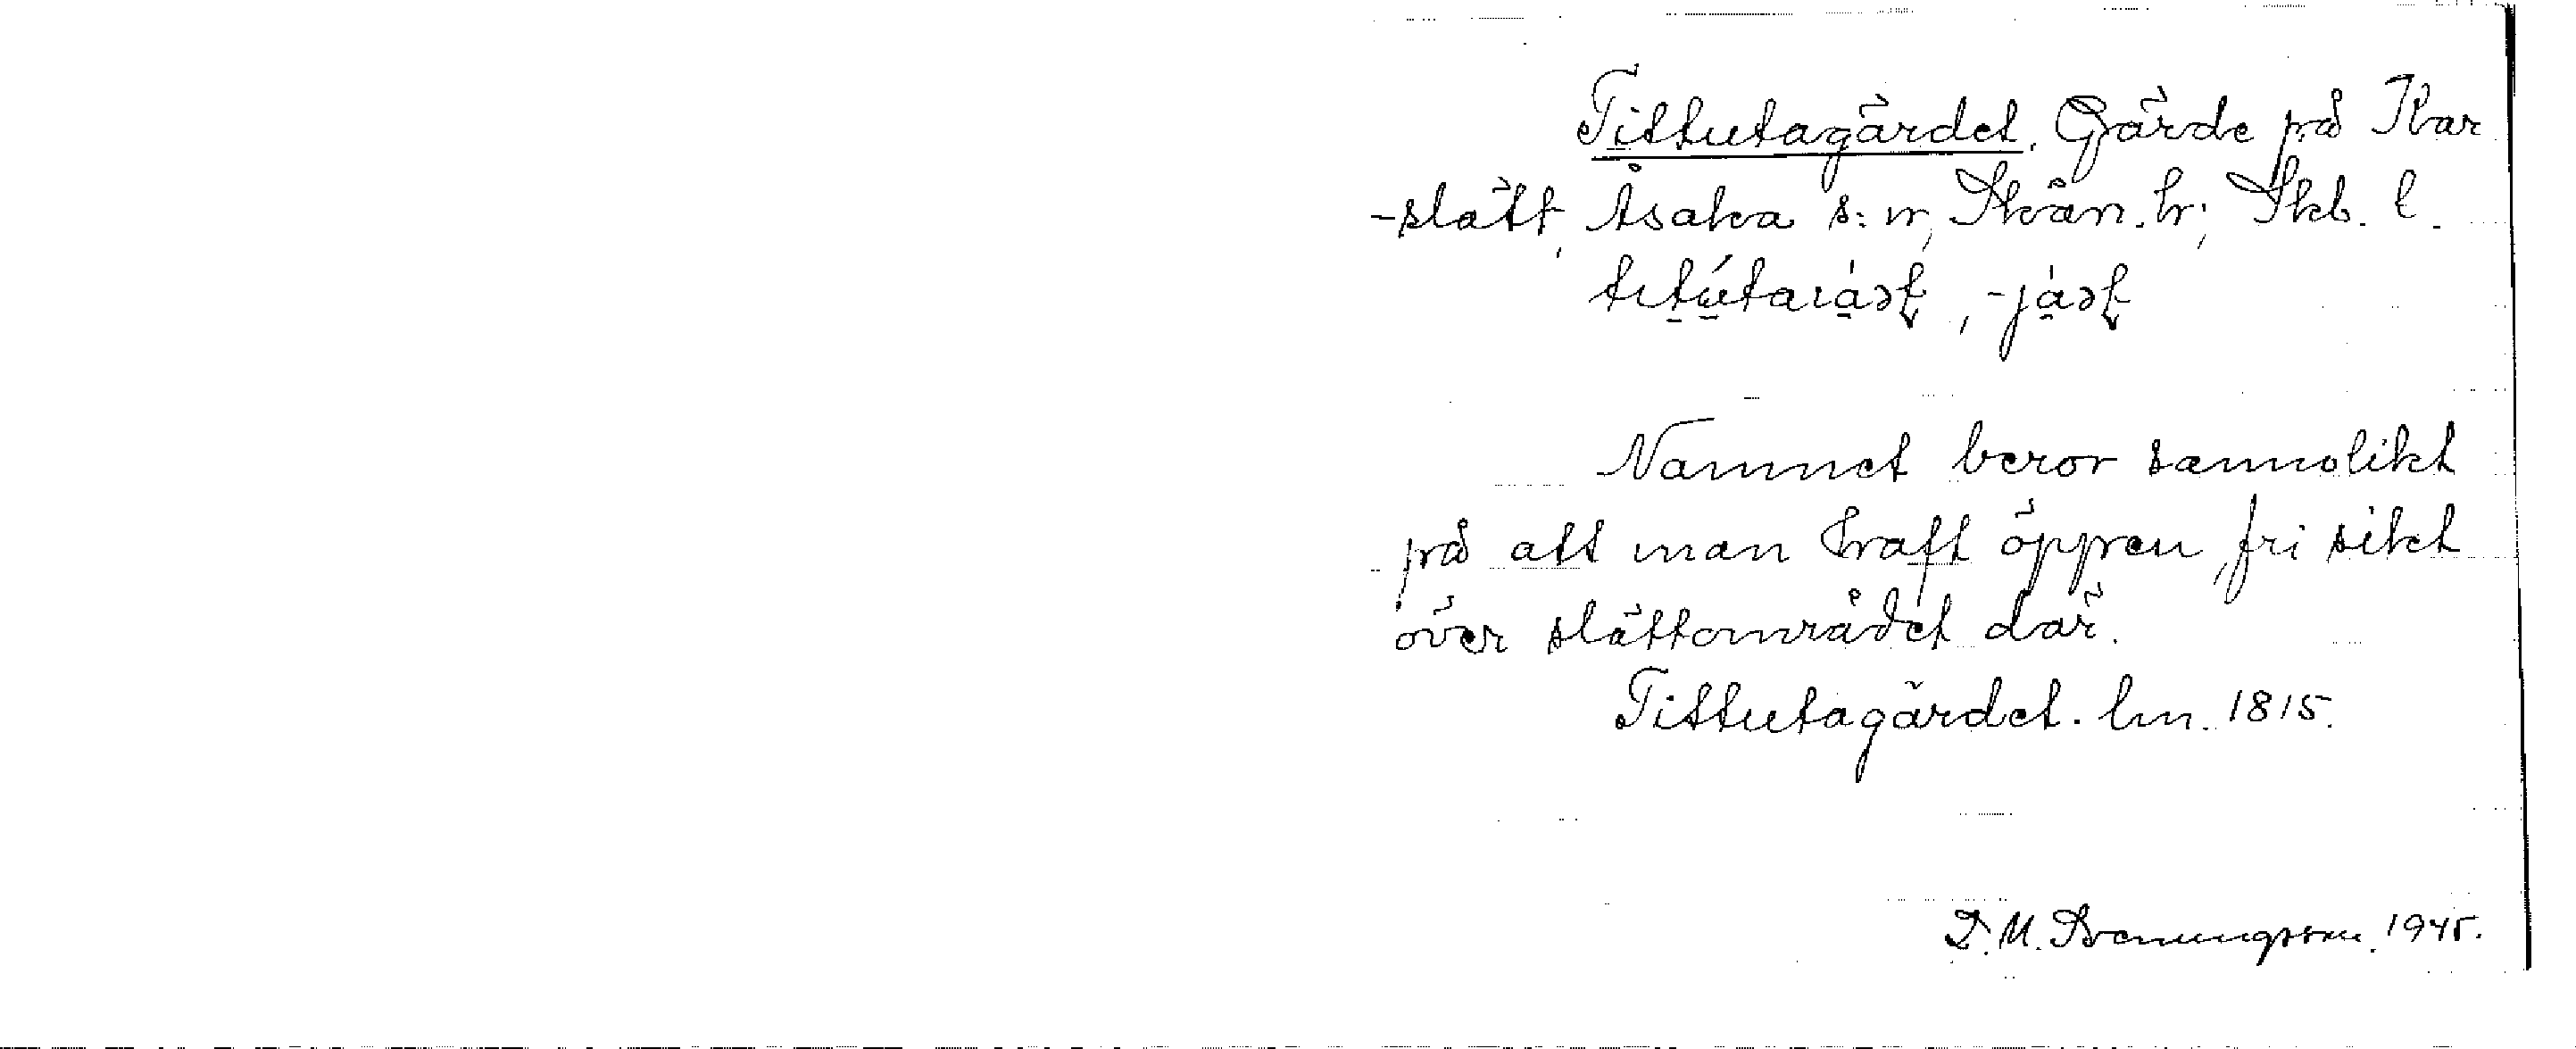 Tittutagärdet. Gärde på Kar
-slätt, Åsaka s:n, Skån. hr; Skb. l.
Namnet beror sannolikt
på att man haft öppen, fri sikt
över slättområdet där.
Tittutagärdet. lm. 1815.
D. M. Svenungsson. 1945.